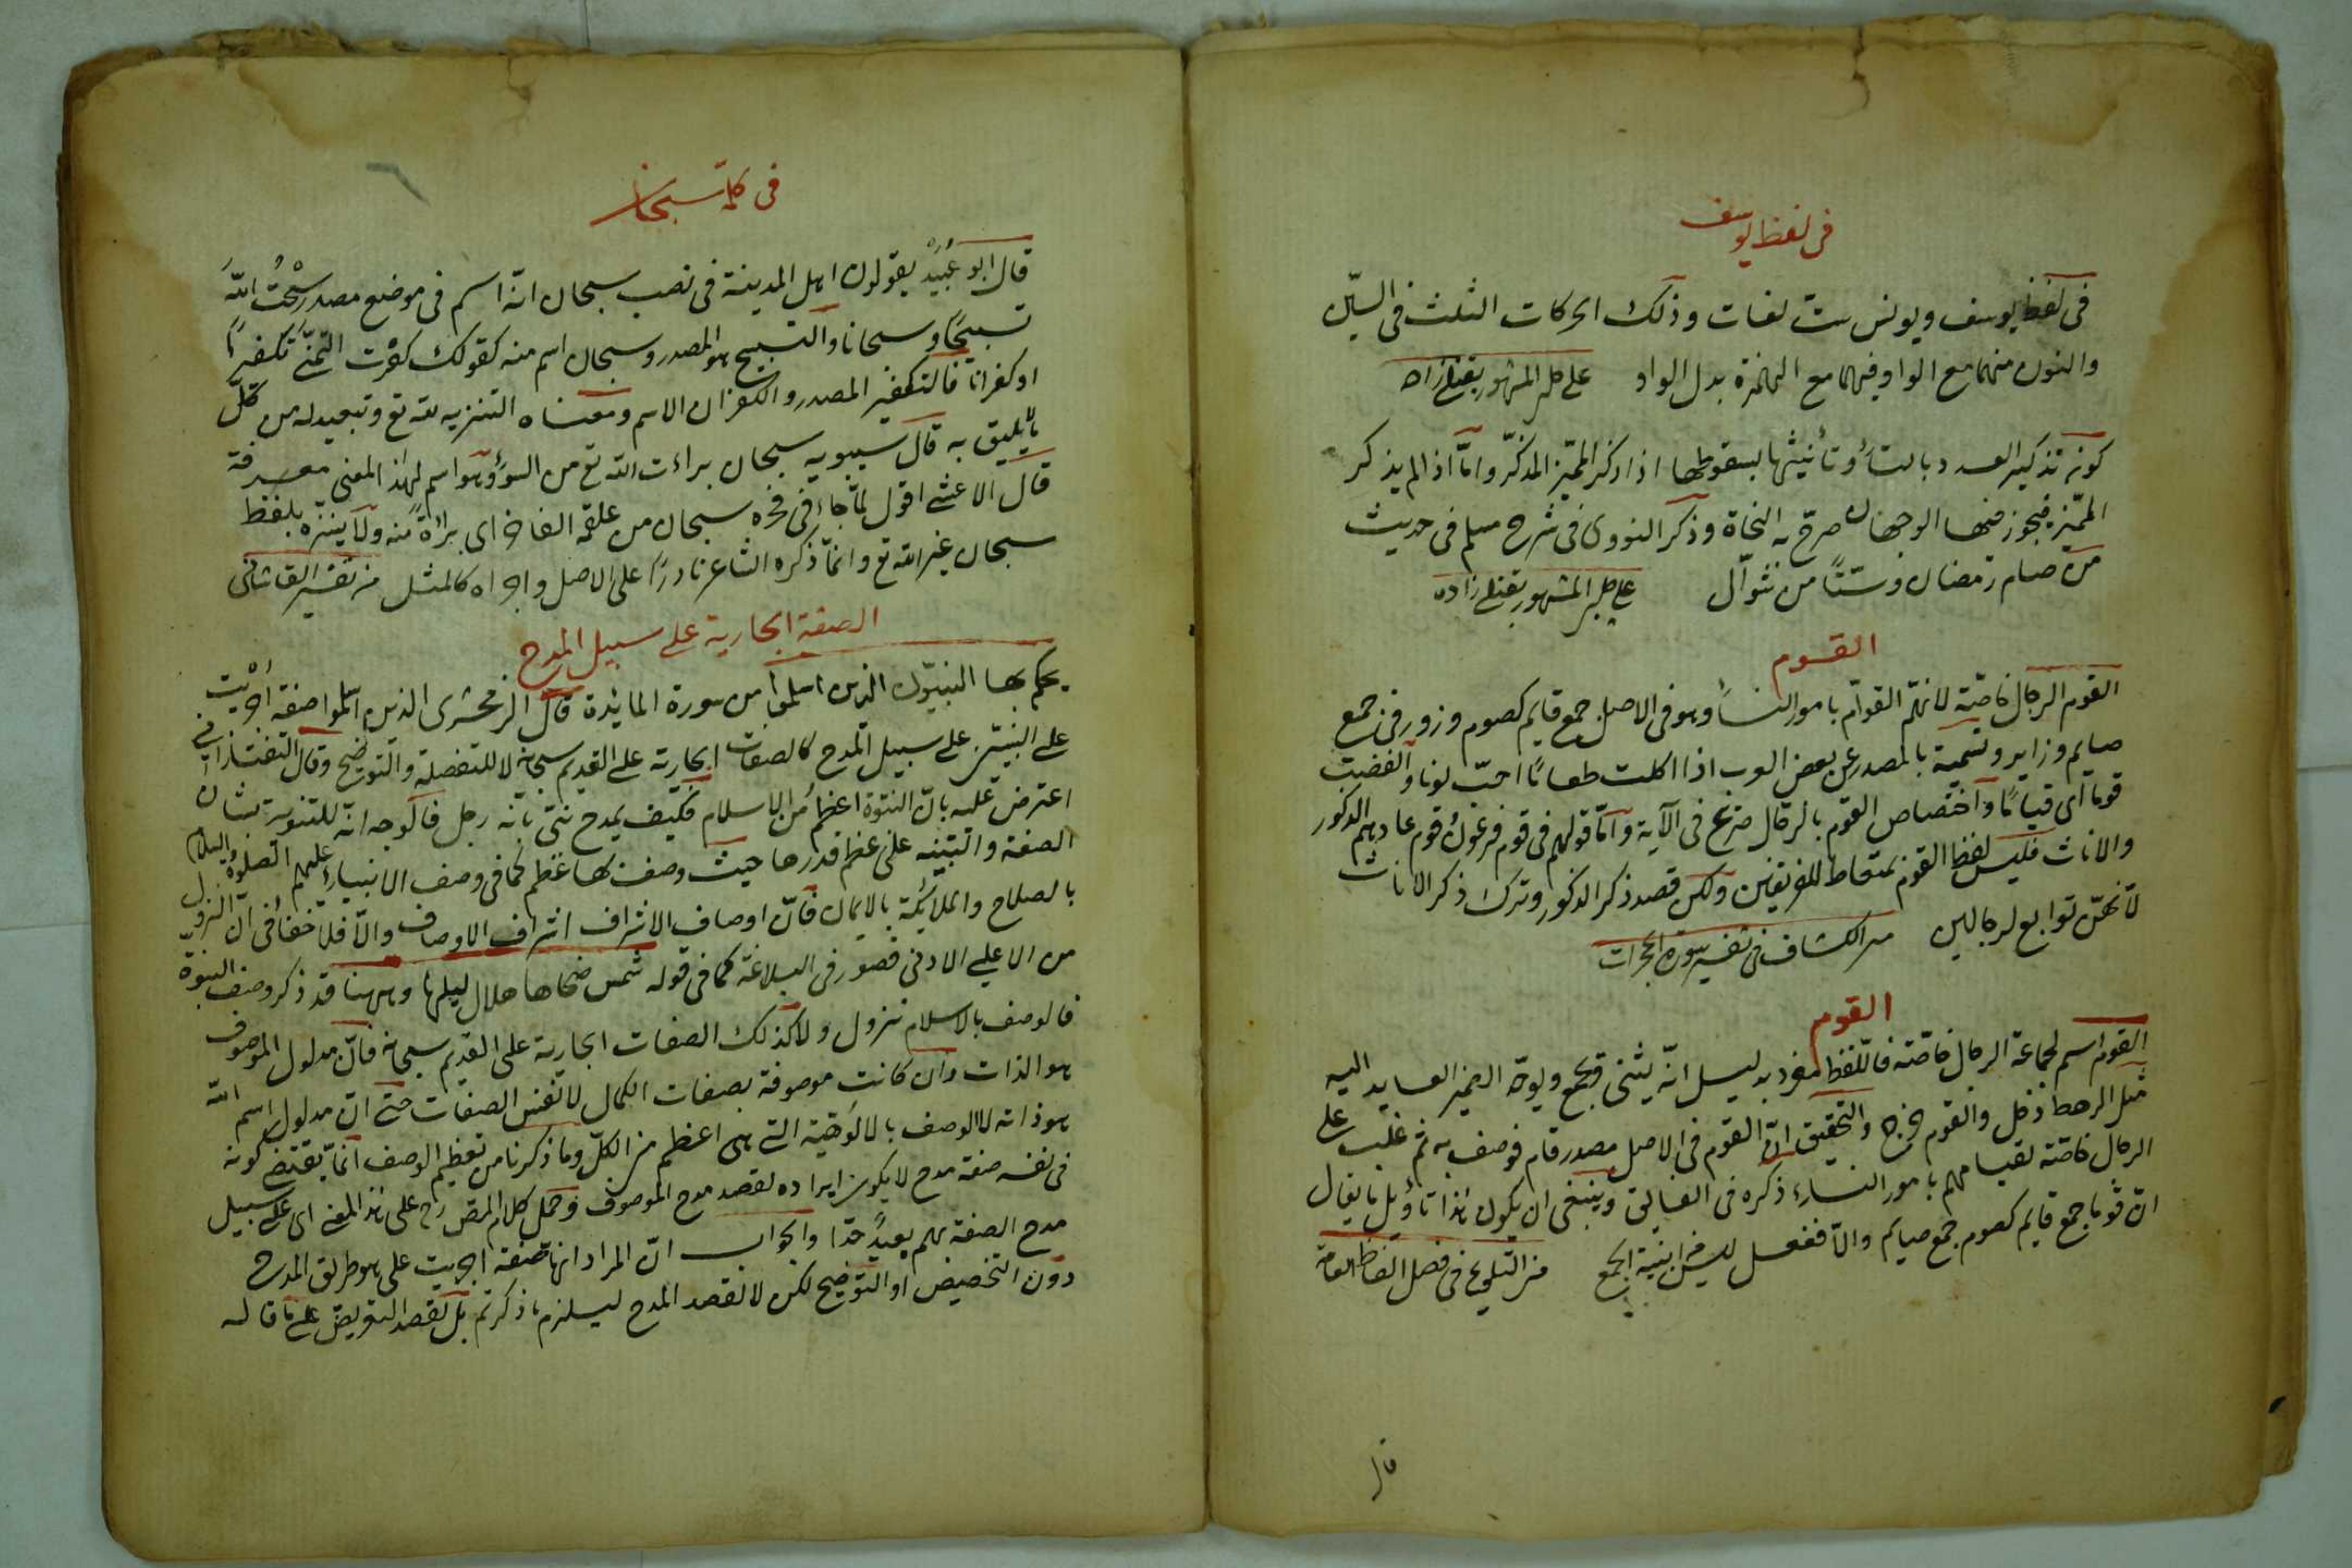 فى لفظ يوسف
فى لفظ يوسف ويونس ست لغات وذلك الحركات الثلث فى السين
والنون منهما مع الواو فيهما مع الهمزة بدل الواو على چلبى المشهور بقنلى زاده
تذكير العدد بالتاء وتأنيثها بسقوطها اذا ذكر المميّز المذكّر وامّا اذا لم يذكر
المميّز فيجوز فيها الوجهان صرّح به النحاة وذكر النووى فى شرح مسلم فى حديث
من صام رمضان وستّا من شوّال على چلبى المشهور بقنلى زاده
القوم
القوم الرجال خاصّة لانّهم القوّام بامور النساء وهو فى الاصل جمع قايم كصوم وزور فى جمع
صايم وزاير وتسمية بالمصدر عن بعض العرب اذا اكلت طعامًا احبّ نوما وابغضت
قوما اى قيامًا واختصاص القوم بالرجال صريح فى الآية وامّا قولهم فى قوم فرعون وقوم عاد هم الذكور
والاناث فليس لفظ القوم بمتعاط للفريقين ولكن قصد ذكر الذكور وترك ذكر الاناث
لانهنّ توابع لرجالهن من الكشاف فى تفسير سورة الحجرات
القوم
القوم اسم لجماعة الرجال خاصّة فاللّفظ مفرد بدليل انّه يثنى ويجمع ويوحّد الضمير العايد اليه
مثل الرهط دخل والقوم خرج والتحقيق انّ القوم فى الاصل مصدر قام فوصف به ثم غلب على
الرجال خاصّة لقيامهم بامور النساء ذكره فى الفايق وينبغى ان يكون هذا تاويل ما يقال
انّ قوما جمع قايم كصوم جمع صايم والّا ففعل ليس من ابنية الجمع من التلويح فى فصل الفاظ العامّ
قال
فى كلمة سبحان
قال ابو عُبَيْد يقولون اهل المدينة فى نصب سبحان انّه اسم فى موضع مصدر سبّحتُ اللهَ
تسبيحًا وسبحانا والتسبيح هو المصدر وسبحان اسم منه كقولك كفّرت اليمين تكفيرًا
او كفرانا فالتكفير المصدر والكفران الاسم ومعناه التنزيه لله تع وتبعيد له من كلّ
ما لا يليق به قال سيبويه سبحان براءت الله تع من السوء وهو اسم لهذا المعنى معرفة
قال الاعشى اقول لمّا جاء فى فخره سبحان من علقمة الفاخر اى براءة منه ولا ينزّه بلفظ
سبحان غير الله تع وانّما ذكره الشاعر نادرًا على الاصل واجراه كالمثل من تفسير القاشانى
الصفة الجارية على سبيل المدح
يحكم بها النبيّون الذين اسلموا من سورة المائدة قال الزمخشرى الذين اسلموا صفة اُجْريت
على النبيّين على سبيل المدح كالصفات الجارية على القديم سبحانه لا للتفصلة والتوضيح وقال التفتازانى
اعترض عليه بانّ النبوّة اعظمُ من الاسلام فكيف يمدح نبىّ بانّه رجل فالوجه انّه للتنويه بشان
الصفة والتنبيه على عظم قدرها حيث وصف بها عظيم كما فى وصف الانبياء عليهم الصلوة والسلام
بالصلاح والملائكة بالايمان فانّ اوصاف الاشراف اشراف الاوصاف والّا فلا خفاء فى انّ النزول
من الاعلى الى الادنى قصور فى البلاغة كما فى قوله شمس ضحاها هلال ليلها وههنا قد ذكر وصف النبوّة
فالوصف بالاسلام تنزول ولا كذلك الصفات الجارية على القديم سبحانه فانّ مدلول الموصوف
هو الذات وان كانت موصوفة بصفات الكمال لا نفس الصفات حتى انّ مدلول اسم الله
هو ذاته لا الوصف بالالوهيّة التى هى اعظم من الكلّ وما ذكرنا من تعظيم الوصف انّما يقتضى كونه
فى نفسه صفة مدح لا يكون ايراده لقصد مدح الموصوف وحمل كلام المص رح على هذا المعنى اى على سبيل
مدح الصفة بهم بعيدٌ جدّا والجواب انّ المراد انها صفة اجريت على هو طريق المدح
دون التخصيص او التوضيح لكن لا لقصد المدح ليلزم ما ذكرتم بل لقصد التعريض على ما قاله